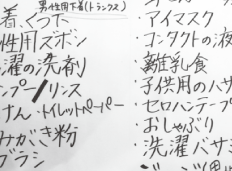 男性用下着(トランクス)
着、くつ下
性用ズボン
濯の洗剤
ンプー/リンス
けん・トイレットペーパー
みがき粉
ブラシ
・アイマスク
・コンタクトの液
・離乳食
・子供用のハサ
・セロハンテープ
・おしゃぶり
・洗濯バサミ